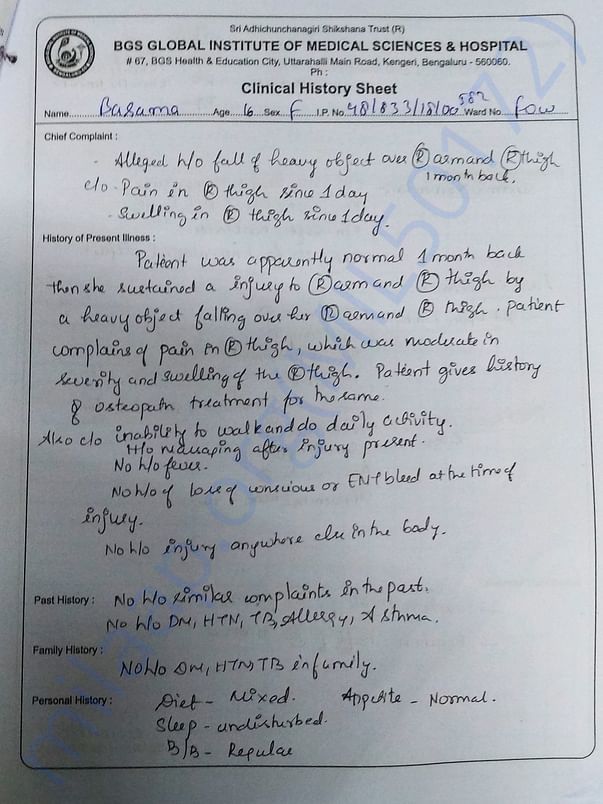 Sri Adhichunchanagiri Shikshana Trust (R)
BGS GLOBAL INSTITUTE OF MEDICAL SCIENCES & HOSPITAL
# 67, BGS Health & Education City, Uttarahalli Main Road, Kengeri, Bengaluru - 560060.
Ph :
Clinical History Sheet
Name Basama Age 16 Sex F I.P. No. 48/833/18/00582 Ward No. fow
Chief Complaint :
- Alleged h/o fall of heavy object over Ⓡ arm and Ⓡ thigh
1 month back.
c/o - Pain in Ⓡ thigh since 1 day
- Swelling in Ⓡ thigh since 1 day.
History of Present Illness :
Patient was apparently normal 1 month back
then she sustained a injury to Ⓡ arm and Ⓡ thigh by
a heavy object falling over her Ⓡ arm and Ⓡ thigh. Patient
complains of pain in Ⓡ thigh, which was moderate in
severity and swelling of the Ⓡ thigh. Patient gives history
of osteopath treatment for the same.
Also c/o inability to walk and do daily activity.
H/o massaging after injury present.
No h/o fever.
No h/o of loss of conscious or ENT bleed at the time of
injury.
No h/o injury anywhere else in the body.
Past History : No h/o similar complaints in the past.
No h/o DM, HTN, TB, Allergy, Asthma.
Family History :
No h/o DM, HTN, TB in family.
Personal History : Diet - Mixed. Appetite - Normal.
Sleep - undisturbed.
B/B - Regular